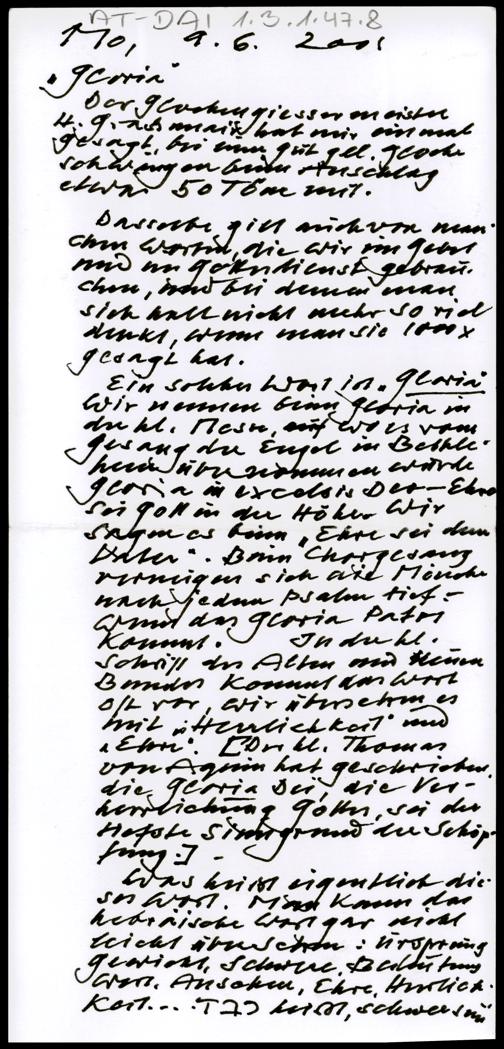 AT-DAI 1.3.1.47.8
Mo, 9. 6. 2001
„Gloria"
Der Glockengiessermeister
hat mir einmal
gesagt, bei einer gut gel. Glocke
schwingen beim Anschlag
etwa 50 Töne mit.
Dasselbe gilt auch von man-
chen Worten, die wir im Gebet
und im Gottesdienst gebrau-
chen, und bei denen man
sich halt nicht mehr so viel
denkt, wenn man sie 1000x
gesagt hat.
Ein solches Wort ist „Gloria"
Wir nennen beim Gloria in
der hl. Messe, wo es vom
Gesang der Engel in Bethle-
hem übernommen wurde
Gloria in excelsis Deo - Ehre
sei Gott in der Höhe. Wir
sagen es beim „Ehre sei dem
Vater". Beim Chorgesang
verneigen sich die Mönche
nach jedem Psalm tief -
wenn das Gloria Patri
kommt. In der hl.
Schrift des Alten und Neuen
Bundes kommt das Wort
oft vor, wir übersetzen es
mit „Herrlichkeit" und
„Ehre". [Der hl. Thomas
von Aquin hat geschrieben,
die Gloria Dei, die Ver-
herrlichung Gottes, sei der
tiefste Sinngrund der Schöp-
fung.] -
Was heisst eigentlich die-
ses Wort. Man kann das
hebräische Wort gar nicht
leicht übersetzen: Ursprung
Gewicht, Schwere, Bedeutung
Wert, Ansehen, Ehre, Herrlich-
keit... heisst, schwer sein